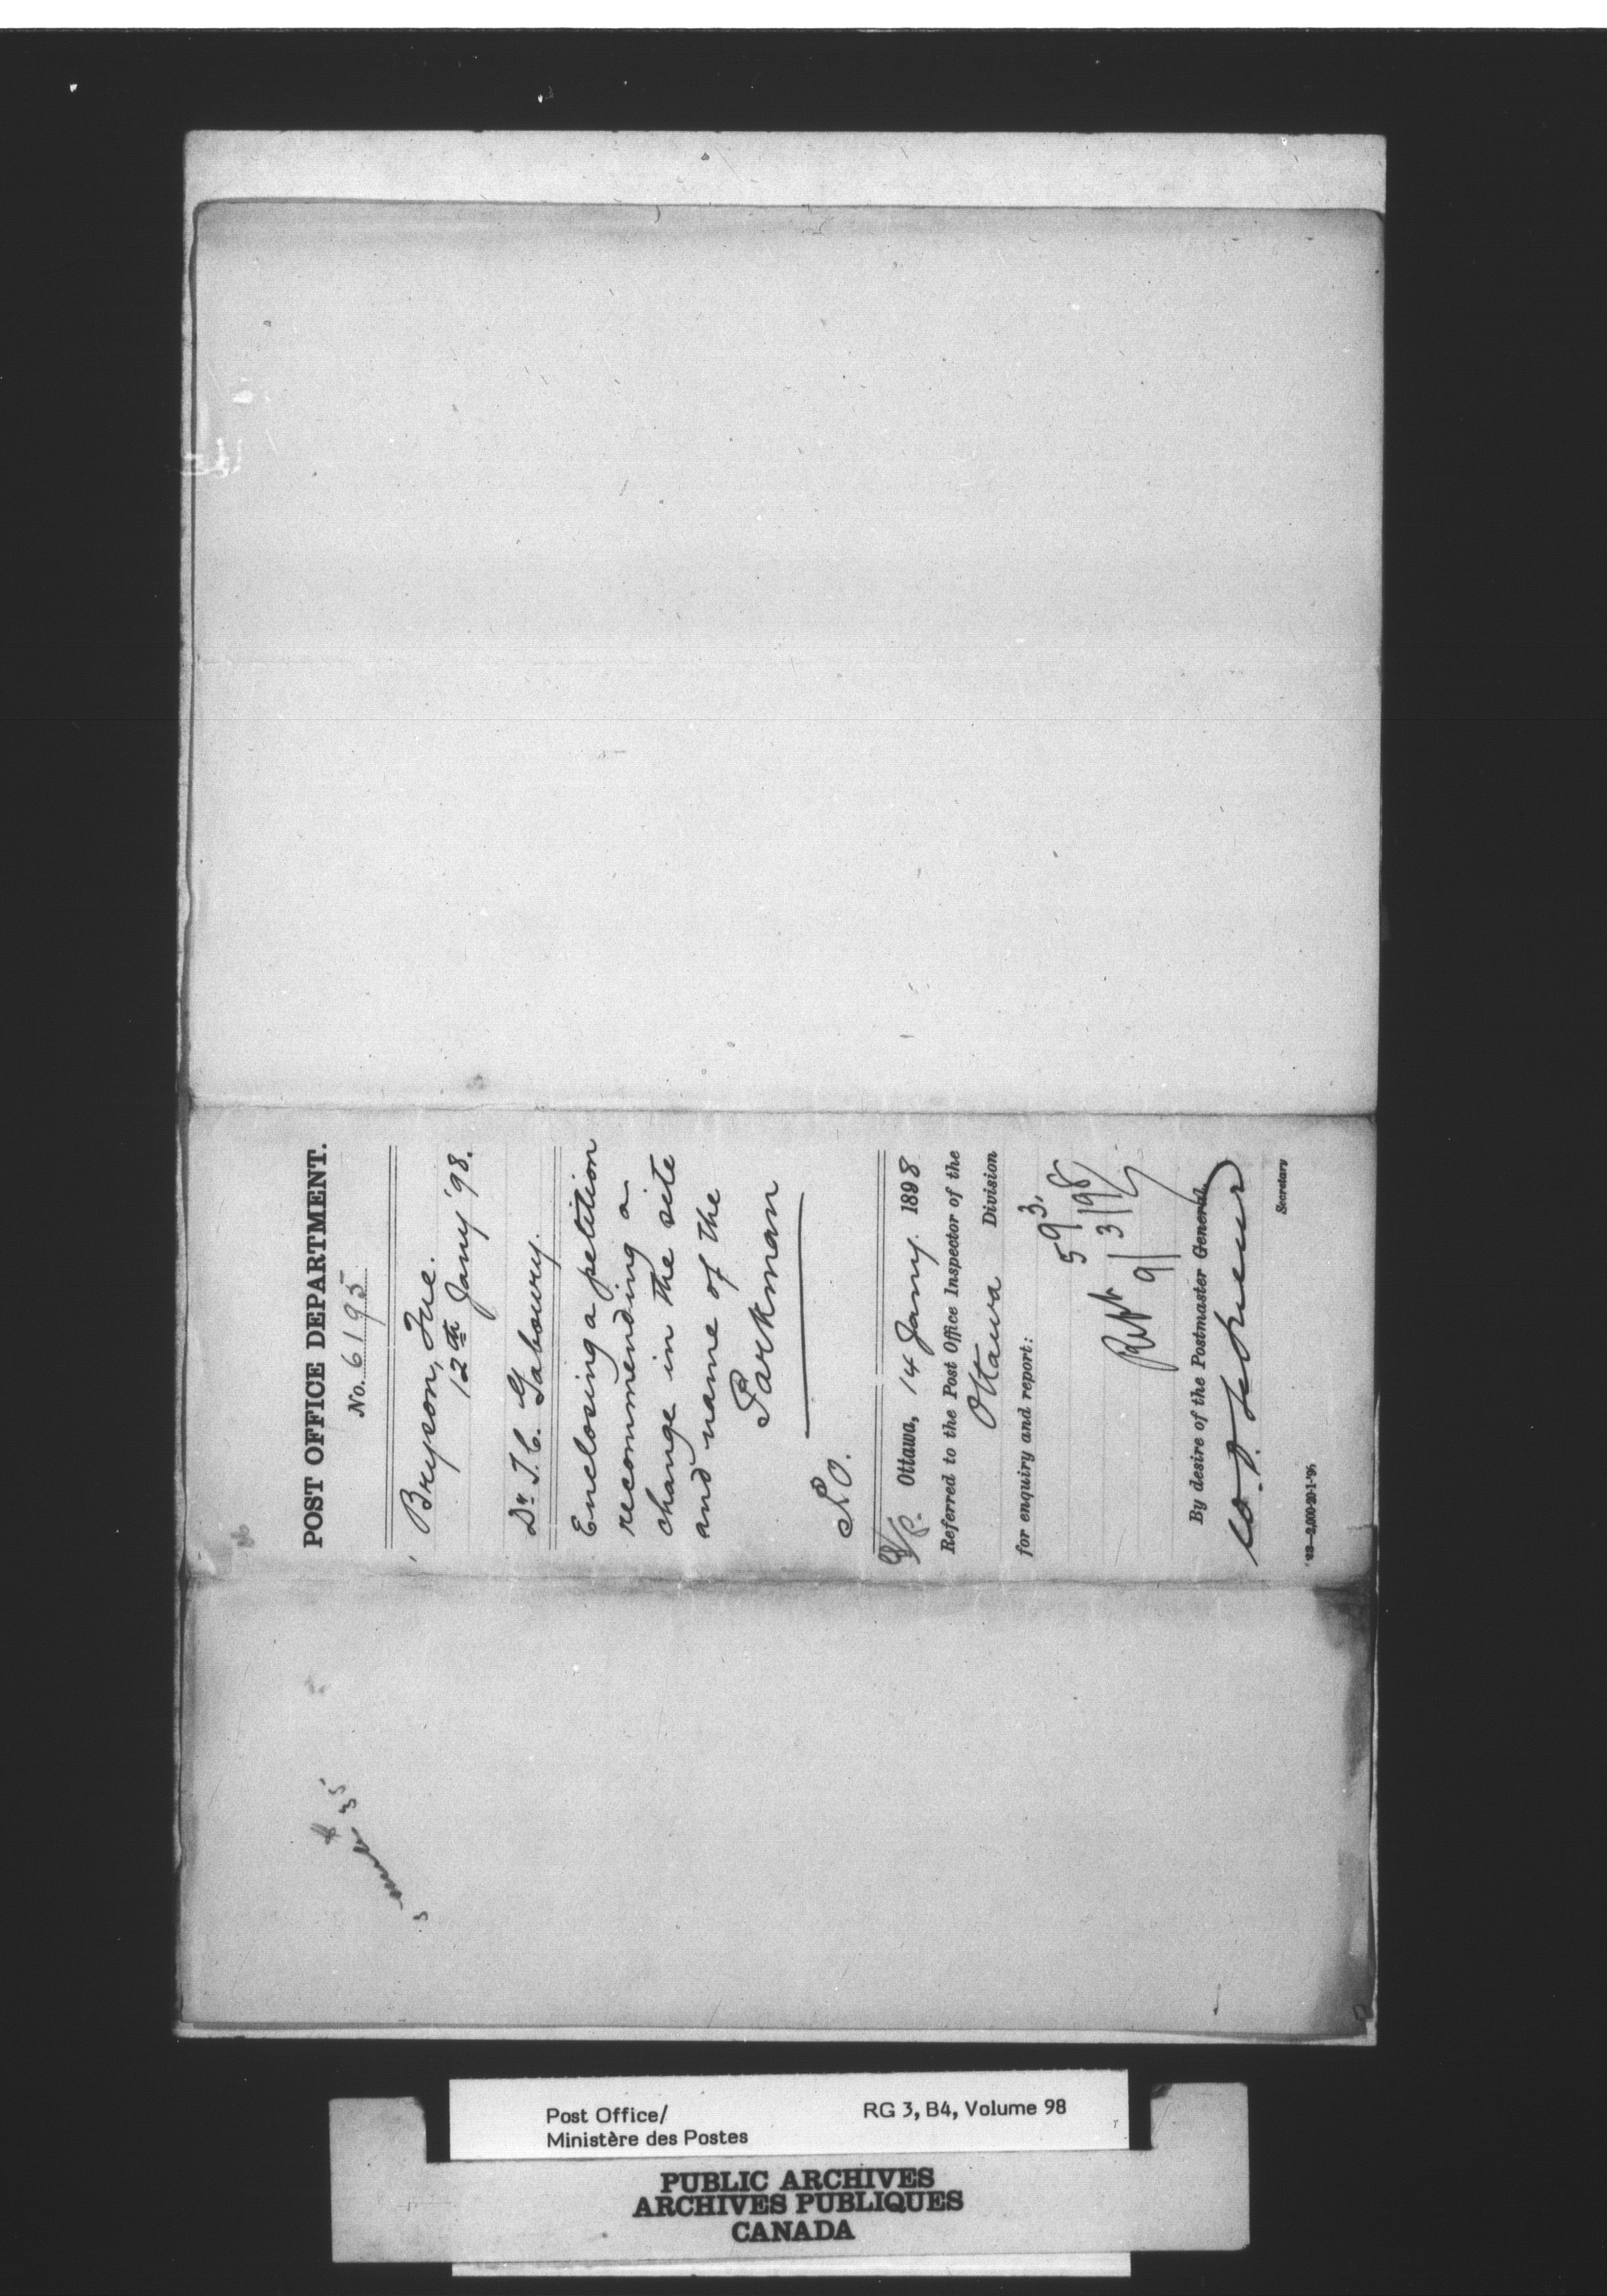 POST OFFICE DEPARTMENT.
No. 6195
Bryson, Que.
12th Jany '98.
Dr. T. C. Gaboury.
Enclosing a petition
recommending a
change in the site
and name of the
Parkman
P.O.
Ottawa, 14 Jany. 1898
Referred to the Post Office Inspector of the
Ottawa Division
for enquiry and report:
593.
9/3/98
By desire of the Postmaster General,
Secretary
Post Office/
Ministère des Postes
RG 3, B4, Volume 98
PUBLIC ARCHIVES
ARCHIVES PUBLIQUES
CANADA